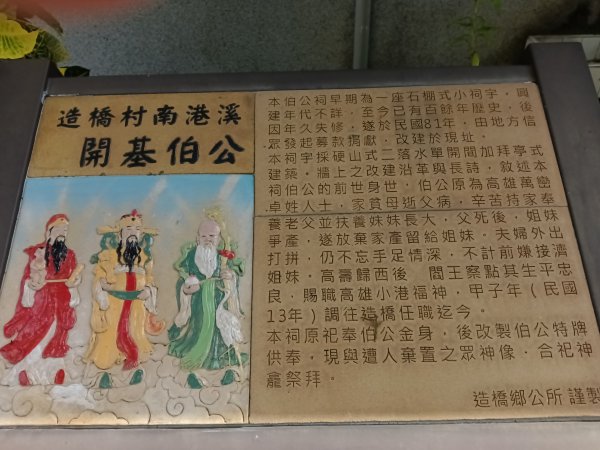 造橋村南港溪
開基伯公
本伯公祠早期為一座石棚式小祠宇，興
建年代不詳，至今已有百餘年歷史，後
因年久失修，遂於民國81年，由地方信
眾發起募款捐獻，改建於現址。
本祠宇採硬山式二落水單開間加拜亭式
建築，牆上之改建沿革與長詩，敘述本
祠伯公的前世身世，伯公原為高雄萬巒
卓姓人士，家貧母逝父病，辛苦持家奉
養老父並扶養妹妹長大，父死後，姐妹
爭產，遂放棄家產留給姐妹，夫婦外出
打拼，仍不忘手足情深，不計前嫌接濟
姐妹，高壽歸西後　閻王察點其生平忠
良，賜職高雄小港福神，甲子年（民國
13年）調往造橋任職迄今。
本祠原祀奉伯公金身，後改製伯公特牌
供奉，現與遭人棄置之眾神像，合祀神
龕祭拜。
造橋鄉公所 謹製